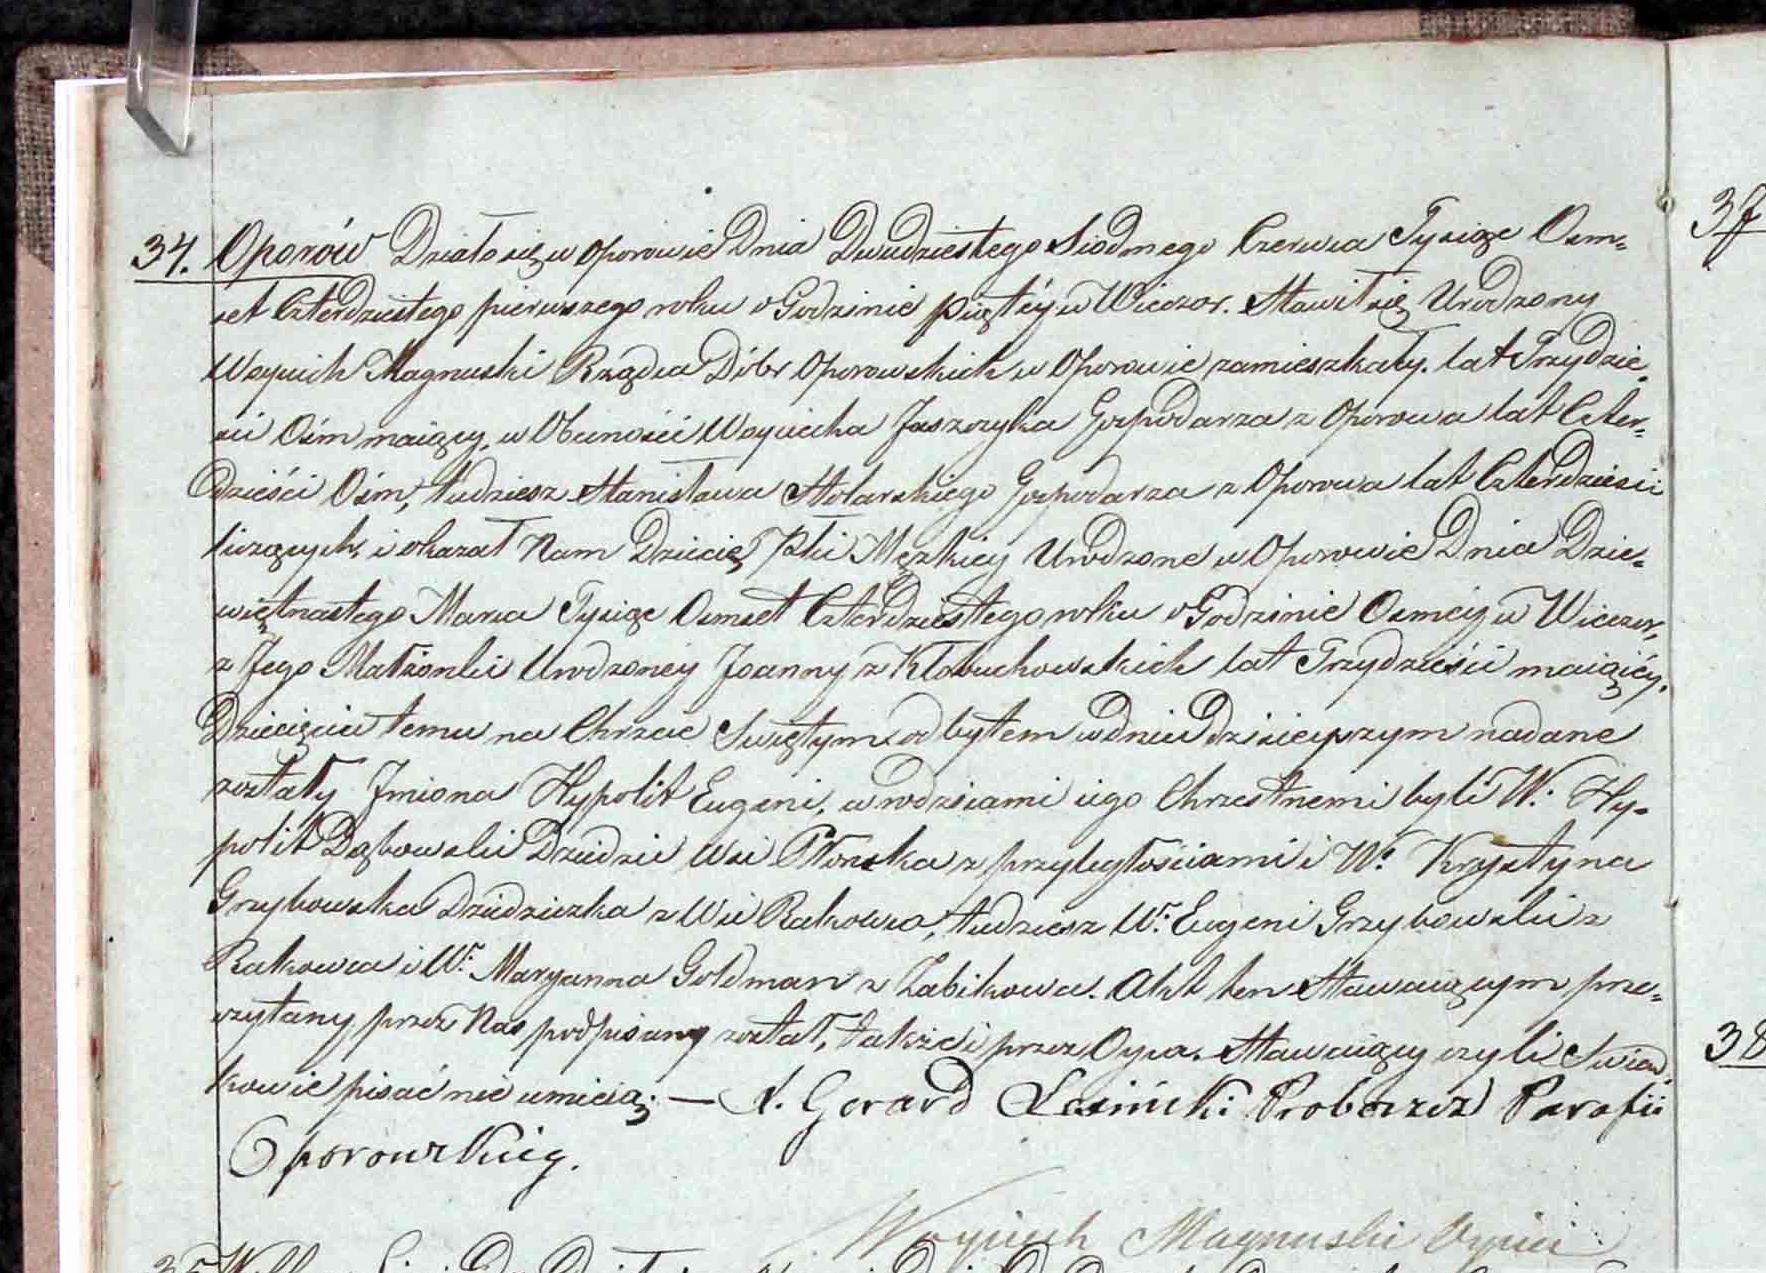 34. Oporów Działo się w Oporowie Dnia Dwudziestego Siodmego Czerwca Tysiąc Ośm-
set Czterdziestego pierwszego roku o Godzinie piątéy w Wieczor. Stawił się Urodzony
Woyciech Magnuski Rządca Dóbr Oporowskich w Oporowie zamieszkały. lat Trzydzie-
sci Ośm maiący, w Obecności Woyciecha Jaszczyka Gospodarza z Oporowa lat Czter-
dzieści Ośm, tudziesz Stanisława Stolarskiego Gospodarza z Oporowa lat Czterdziesci
liczących, i okazał Nam Dziecię Płci Męzkiey Urodzone w Oporowie Dnia Dzie-
więtnastego Marca Tysiąc Osmset Czterdziestego roku o Godzinie Osmey w Wieczor,
z Jego Małżonki Urodzoney Joanny z Kłobuchowskich lat Trzydzieści maiącéy.
Dziecięciu temu na Chrzcie Swiętym odbytem w dniu dzisieyszym nadane
zostały Jmiona Hypolit Eugeni, a rodzicami iego Chrzestnemi byli W. Hy-
polit Dąbowski Dziedzic Wsi Płonska z przyległościami i Wa Krystyna
Grzybowska Dziedziczka z Wsi Rakowca, tudziesz Wr. Eugeni Grzybowski z
Rakowca i Wr. Maryanna Goldman z Żabikowa. Akt ten Stawaiącym prze-
czytany przez Nas podpisany został, także i przez Oyca. Stawaiący czyli Swiad-
kowie pisać nie umieią. — X. Gerard Lesiński Proboszcz Parafii
Oporowskiey.
Woyciech Magnuski Oyciec
37
38
35